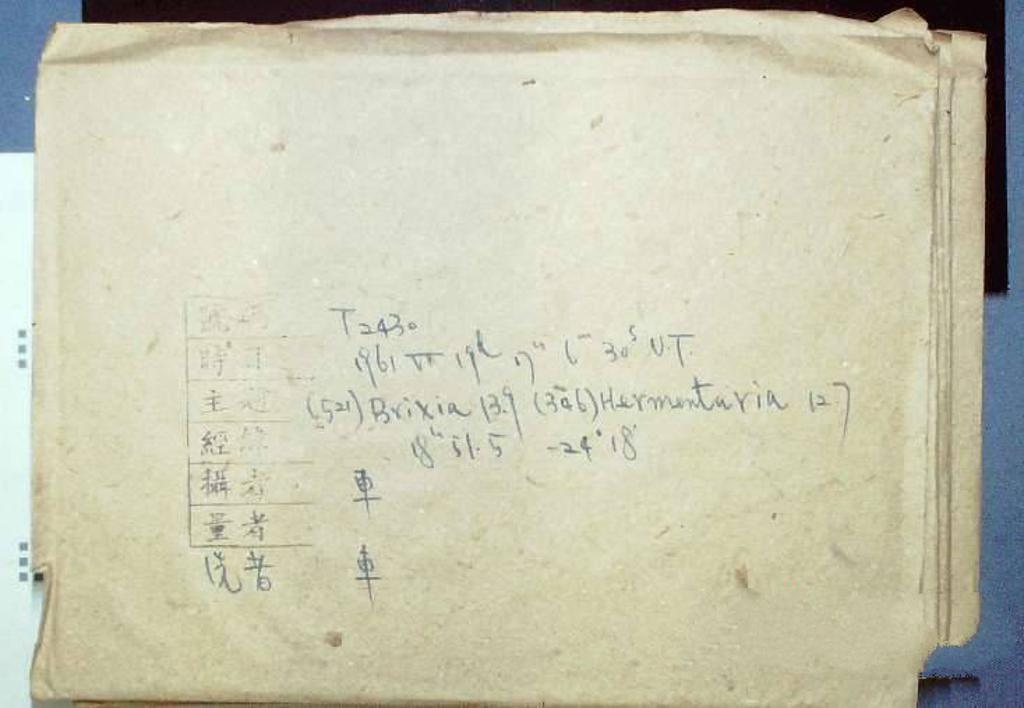 號碼 T2430
時日 1961 VI 19ᵈ 17ʰ 6ᵐ 30ˢ U.T.
主 (521) Brixia 13.9 (346) Hermentaria 12.7
經緯 18ʰ 51.5 -24° 18'
攝者 車
量者
洗者 車